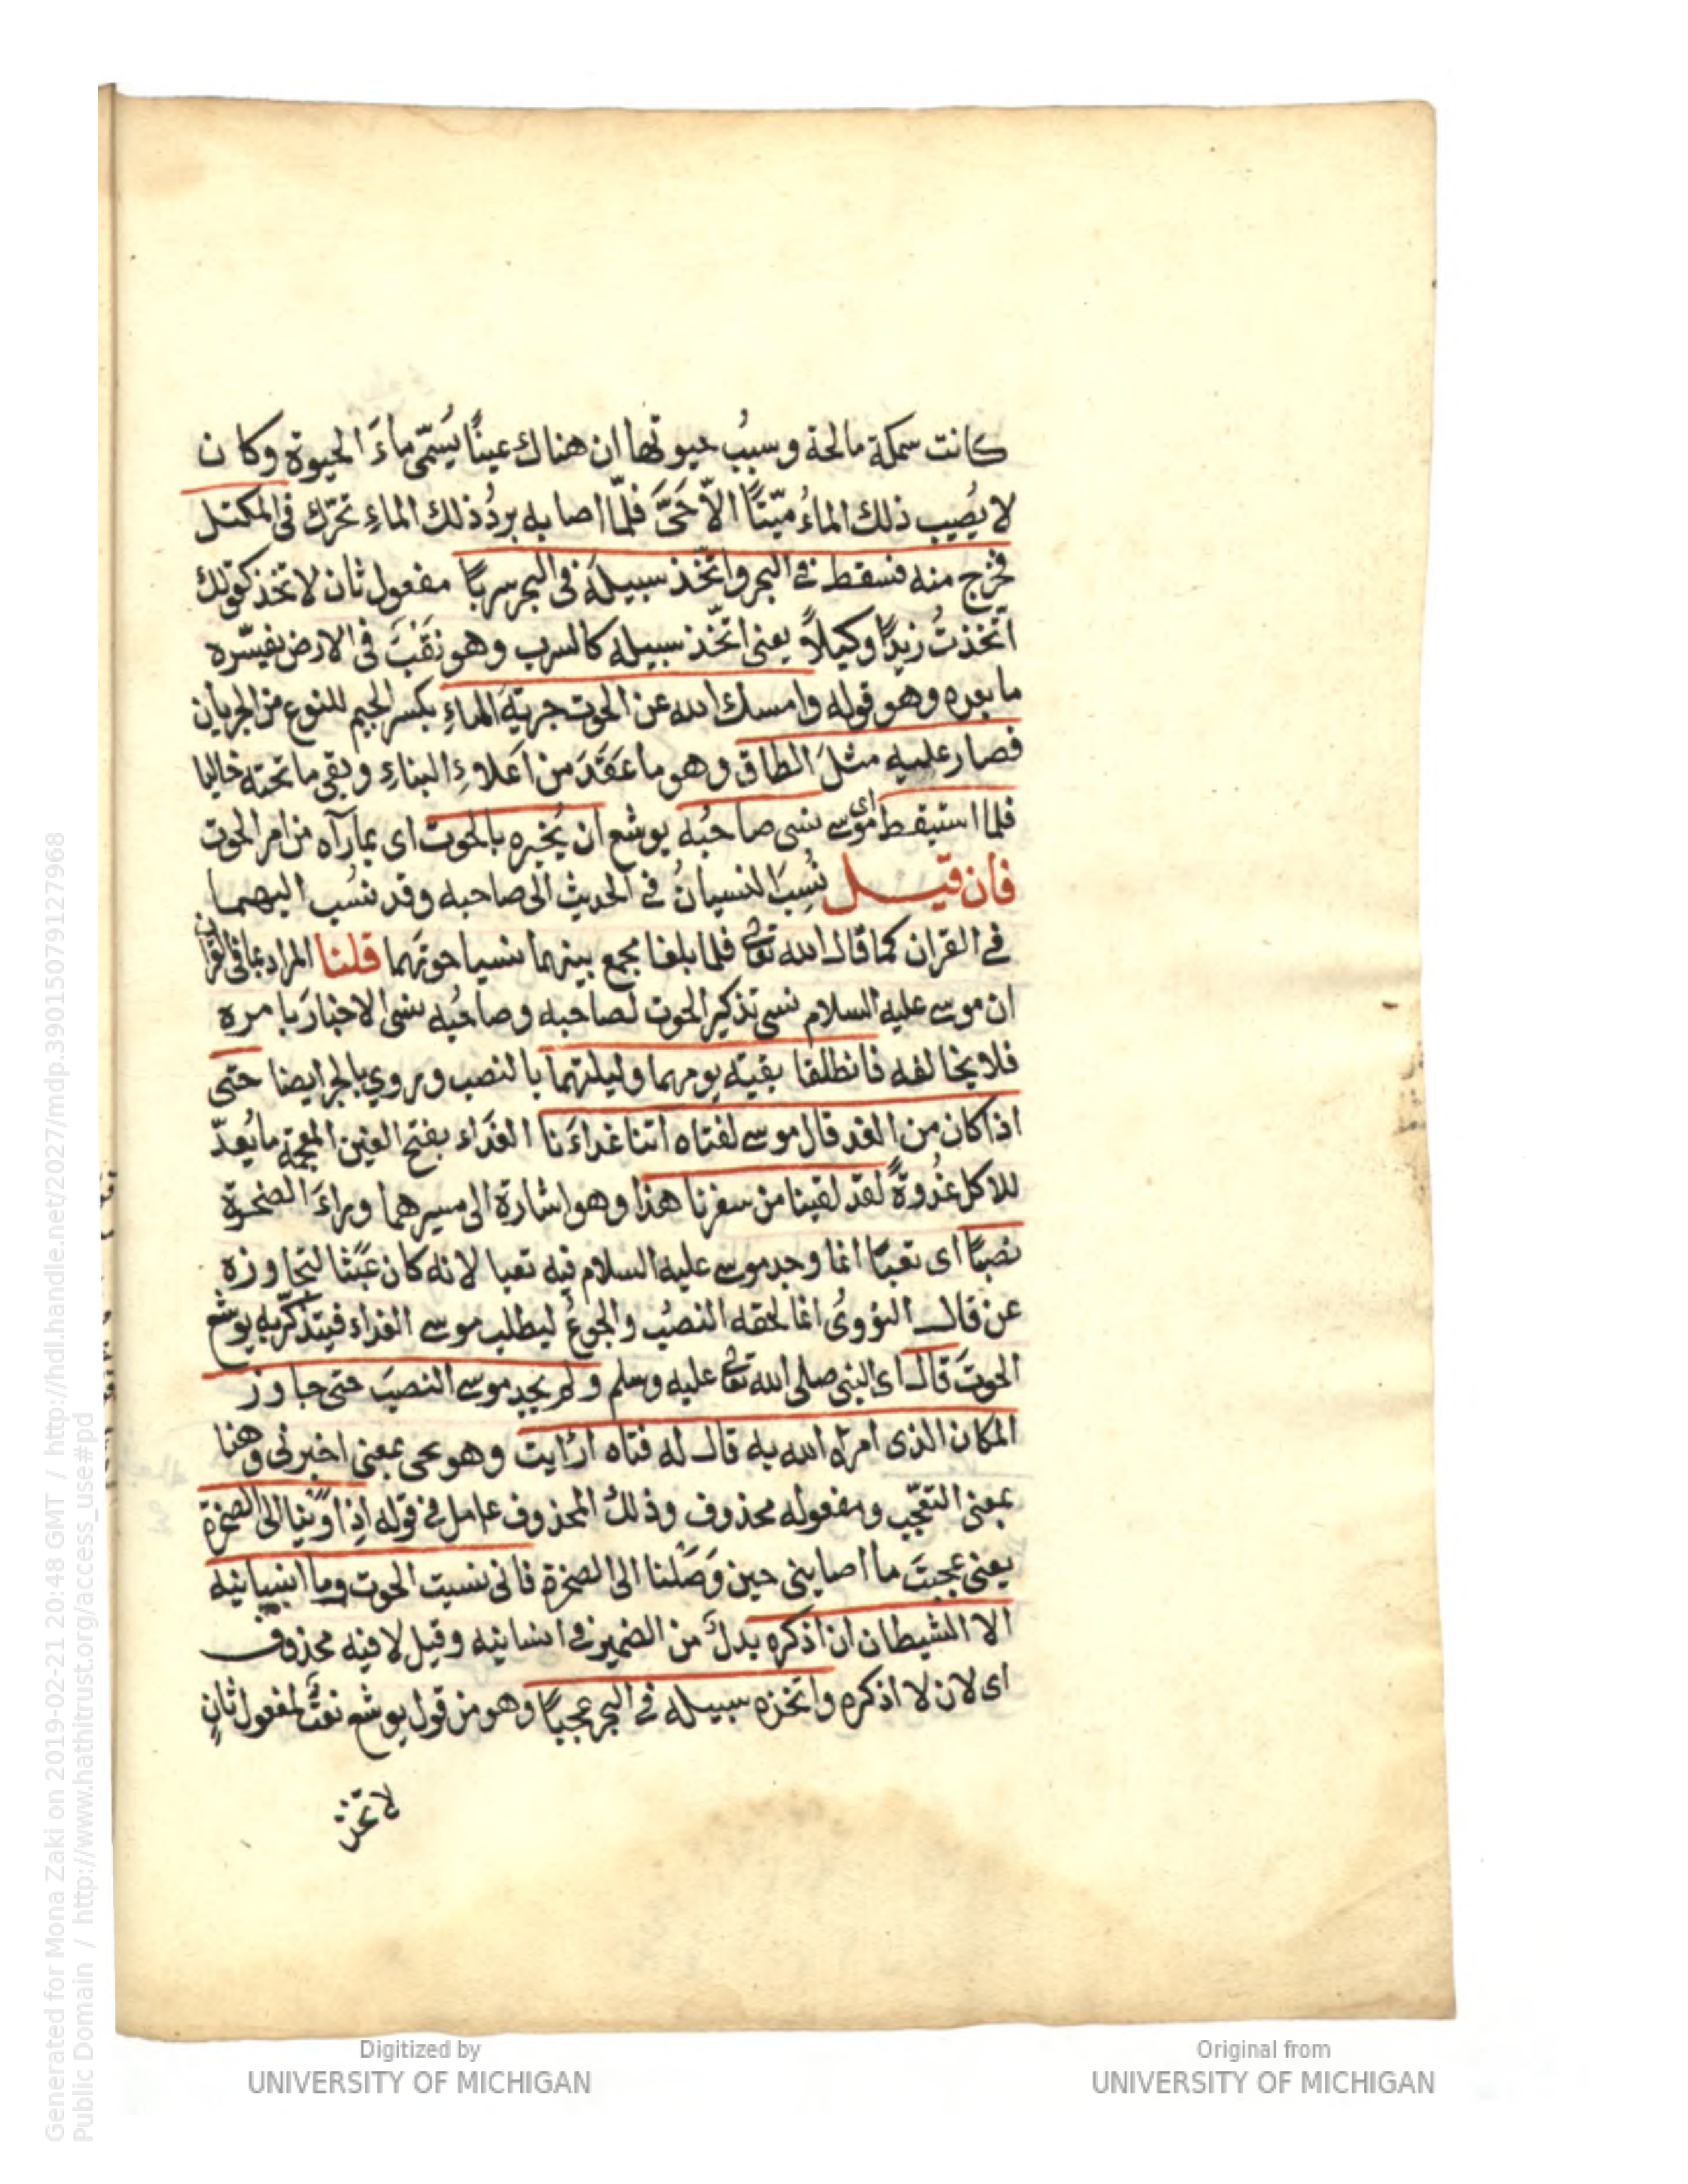 كانت سمكة مالحة و سببُ حيوتها ان هناك عينًا يُسَمّى ماءَ الحيوة وكان
لا يُصيب ذلك الماءُ ميّتًا الّا حَىَّ فلمّا اصابه بردُ ذلك الماءِ تحرّك فى المكتل
فخرج منه فسقط فى البحر واتّخذ سبيلَه فى البحر سربًا مفعول ثان لاتخذ كقولك
اتّخذتُ زيدًا وكيلاً يعنى اتّخذ سبيله كالسرب وهو نَقْبٌ فى الارض يفسّره
ما بعده وهو قوله وامسك الله عن الحوت جريةَ الماءِ بكسر الجيم للنوع من الجريان
فصار عليه مثلَ الطاق وهو ما عقَدَ من اَعلاءِ البناء و بقى ما تحته خاليا
فلما استيقظ اى موسى نسى صاحبُه يوشع ان يُخبره بالحوت اى بما رآه من امر الحوت
فان قيل نُسِبَ النسيانُ فى الحديث الى صاحبه وقد نسُب اليهما
فى القران كما قال الله تعالى فلما بلغا مجمع بينهما نسيا حوتهما قلنا المراد بما فى القران
ان موسى عليه السلام نسى تذكير الحوت لصاحبه وصاحبُه نسى الاخبارَ بامره
فلا يخالفه فانطلقا بقيّه يومهما وليلتهما بالنصب وروى بالجر ايضا حتى
اذا كان من الغد قال موسى لفتاه اتنا غداءَنا الغَداء بفتح الغين المعجمة ما يُعدّ
للاكل غُدوةً لقد لقينا من سفرنا هذا وهو اشارة الى مسيرهما وراءَ الصخرة
نصبًا اى تعبًا انما وجد موسى عليه السلام فيه تعبا لانه كان عَبَثا لتجاوزه
عن قال النووىُ انما لحقه النصبُ والجوعُ ليطلب موسى الغداء فيتذكّر به يوشع
الحوتَ قال اى النبى صلى الله تعالى عليه وسلم ولم يجد موسى النصبَ حتى جاوز
المكان الذى امره الله به قال له فتاه ارايت وهو يجى بمعنى اخبرنى وهنا
بمعنى التعجّب ومفعوله محذوف وذلك المحذوف عامل فى قوله اِذ اَوَيْنا الى الصخرة
يعنى عجبتَ ما اصابنى حين وَصَلنا الى الصخرة فانى نسيت الحوت وما انسانيه
الا الشيطان ان اذكره بدلٌ من الضمير فى انسانيه وقيل لا فيه محذوف
اى لان لا اذكره واتخذه سبيله فى البحر عجبًا وهو من قول يوشع نعتٌ لمفعول ثانٍ
لاتخذ
Generated for Mona Zaki on 2019-02-21 20:48 GMT / http://hdl.handle.net/2027/mdp.39015079127968
Public Domain / http://www.hathitrust.org/access_use#pd
Digitized by
UNIVERSITY OF MICHIGAN
Original from
UNIVERSITY OF MICHIGAN